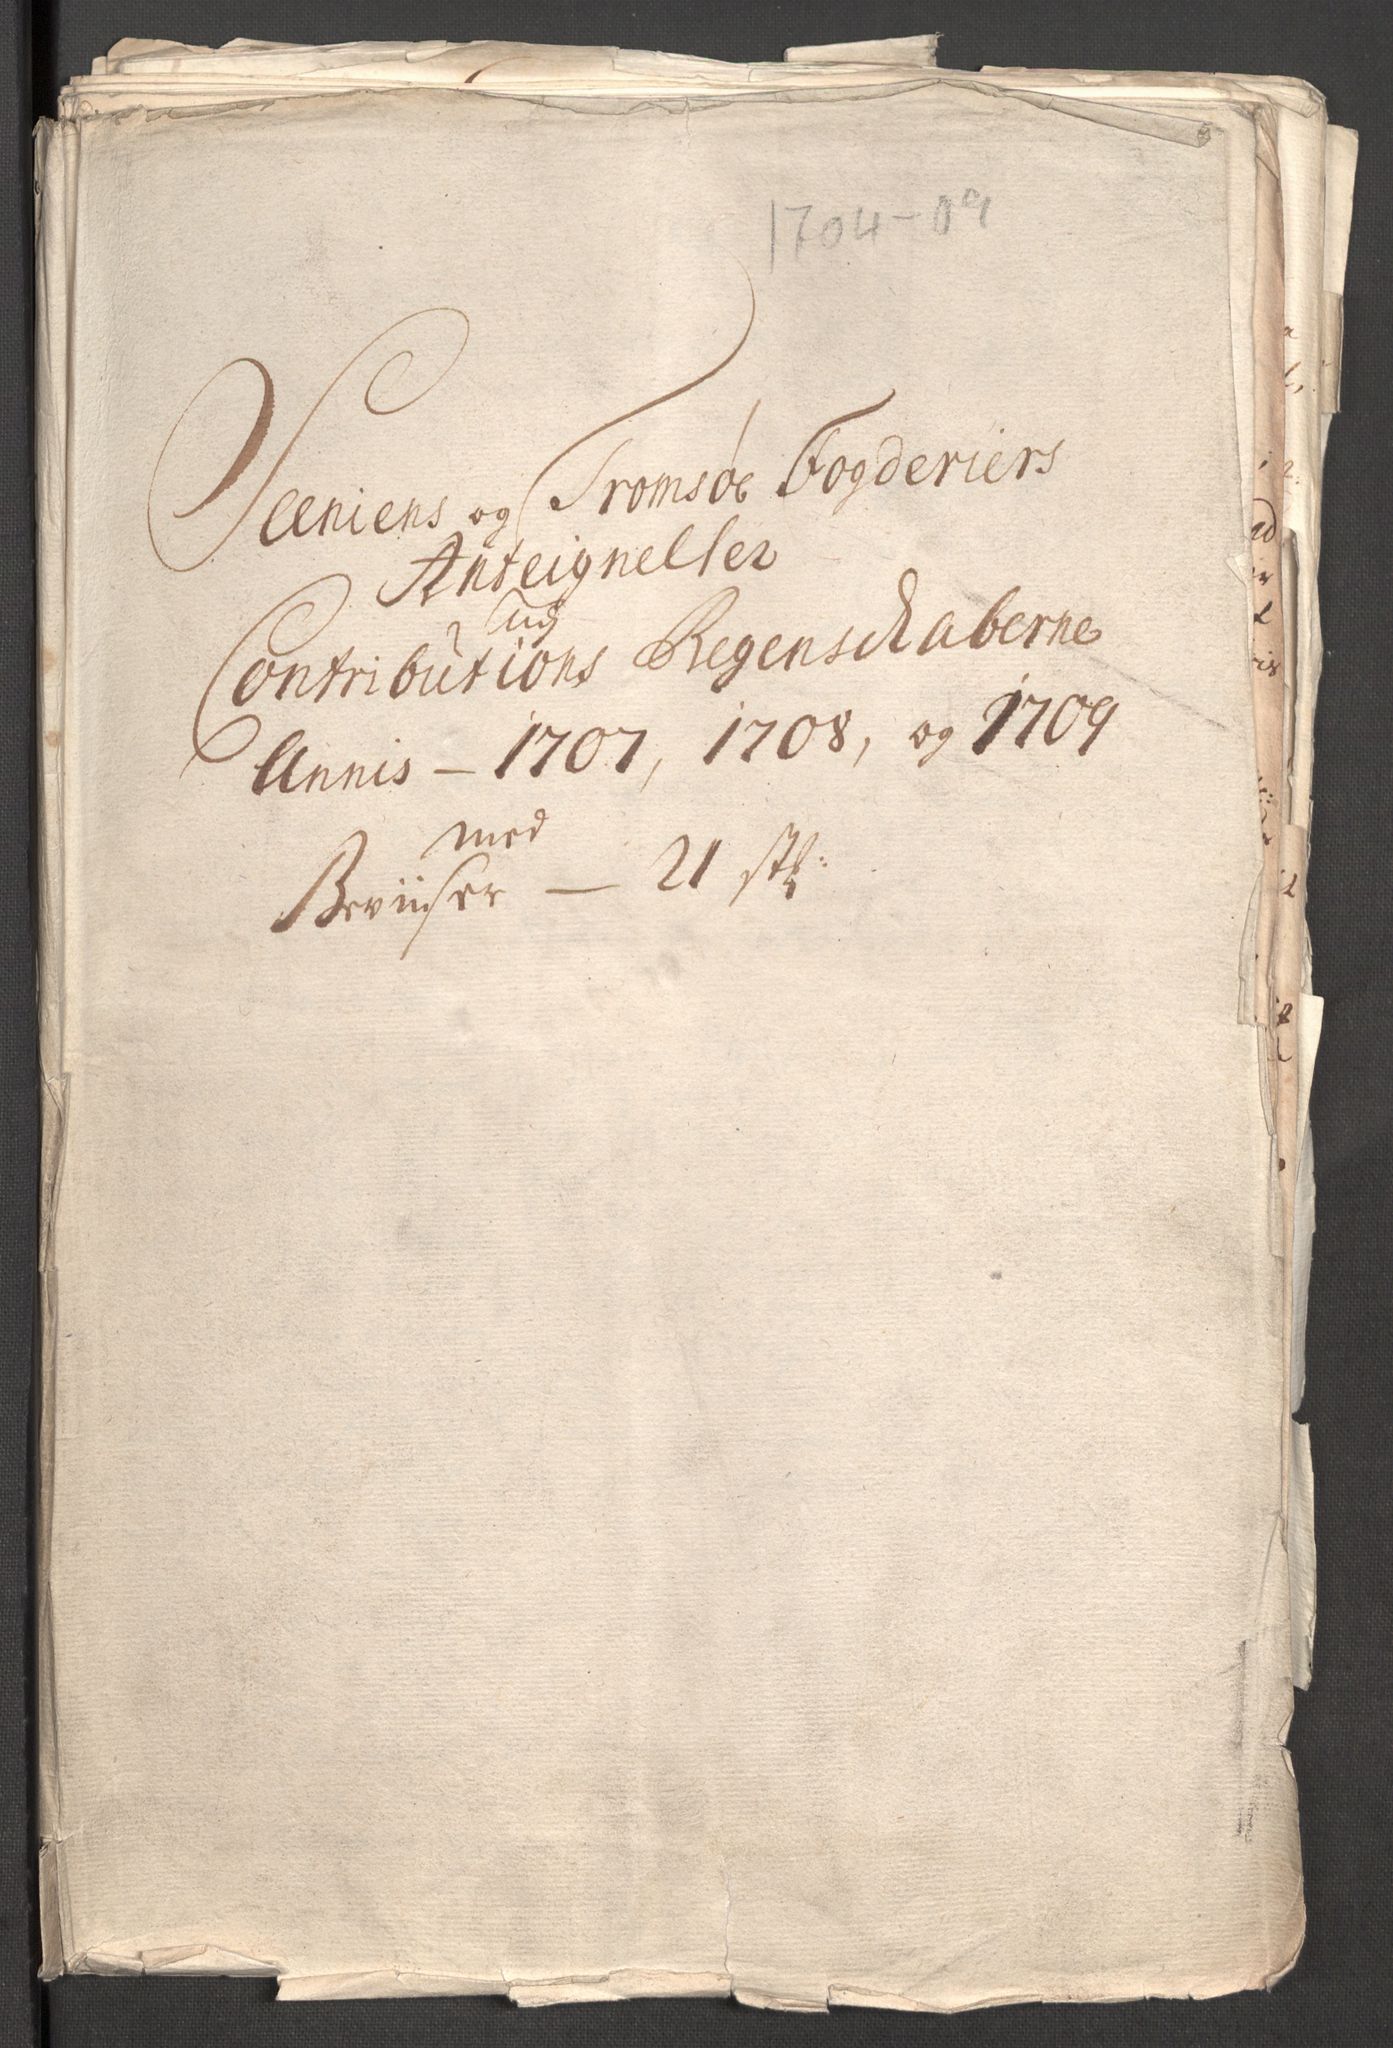 1704-09
Seeniens og Tromsøe Fogderiers
Anteignelser
ved
Contributions Regenschaberne
Annis - 1707, 1708, og 1709
med
Beviiser — 21 stk: